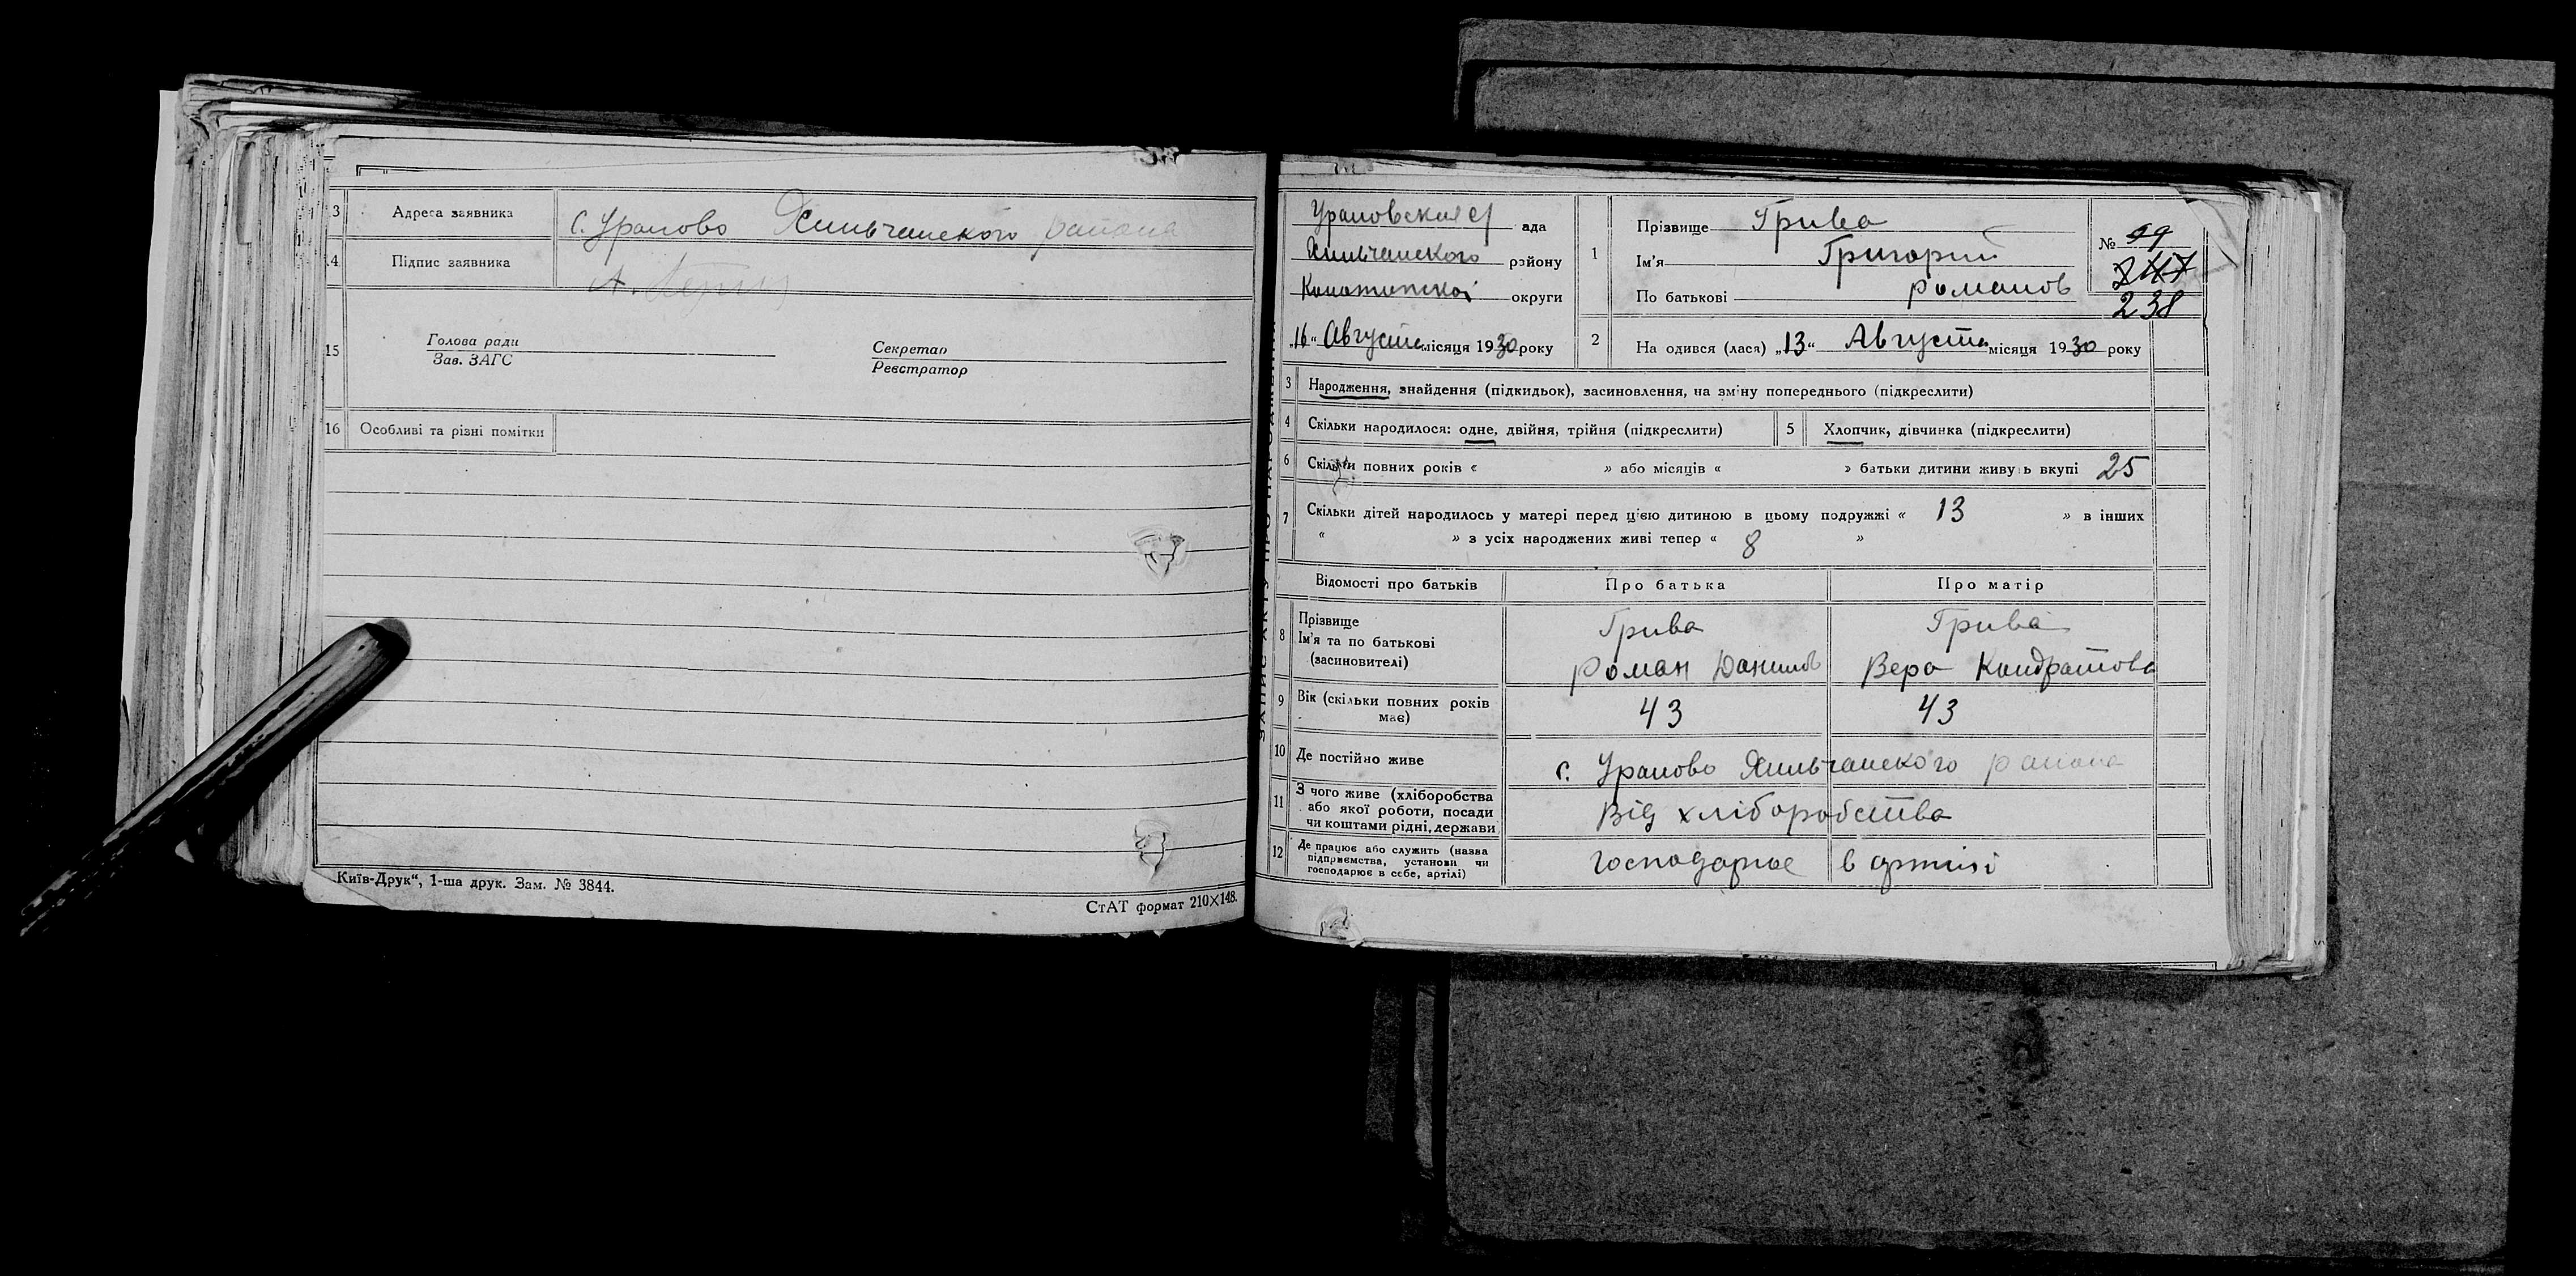 3 Адреса заявника С. Урапово Хмильчанского района
14 Підпис заявника А.
15 Голова ради
Зав. ЗАГС
Секретар
Реєстратор
16 Особливі та різні помітки
Київ-Друк“, 1-ша друк. Зам. № 3844.
СтАТ формат 210×148.
ада
Хмильчанского району
Конотопской округи
„16“ Августа місяця 1930 року
1 Прізвище Грива
Ім'я Григорий
По батькові Романов
№ 99
247
238
2 На одився (лася) „13“ Августа місяця 1930 року
3 Народження, знайдення (підкидьок), засиновлення, на зміну попереднього (підкреслити)
4 Скільки народилося: одне, двійня, трійня (підкреслити)
5 Хлопчик, дівчинка (підкреслити)
6 Скільки повних років « » або місяців « » батьки дитини живуть вкупі 25
7 Скільки дітей народилось у матері перед цією дитиною в цьому подружжі « 13 » в інших
« » з усіх народжених живі тепер « 8 »
Відомості про батьків Про батька Про матір
8 Прізвище
Ім'я та по батькові
(засиновителі)
Грива
Роман Данилов
Грива
Вера Кондратова
9 Вік (скільки повних років
має)
43 43
10 Де постійно живе с. Урапово Хмильчанского района
11 З чого живе (хліборобства
або якої роботи, посади
чи коштами рідні, держави
Від хліборобства
12 Де працює або служить (назва
підприємства, установи чи
господарює в себе, артілі)
Господарює в артілі